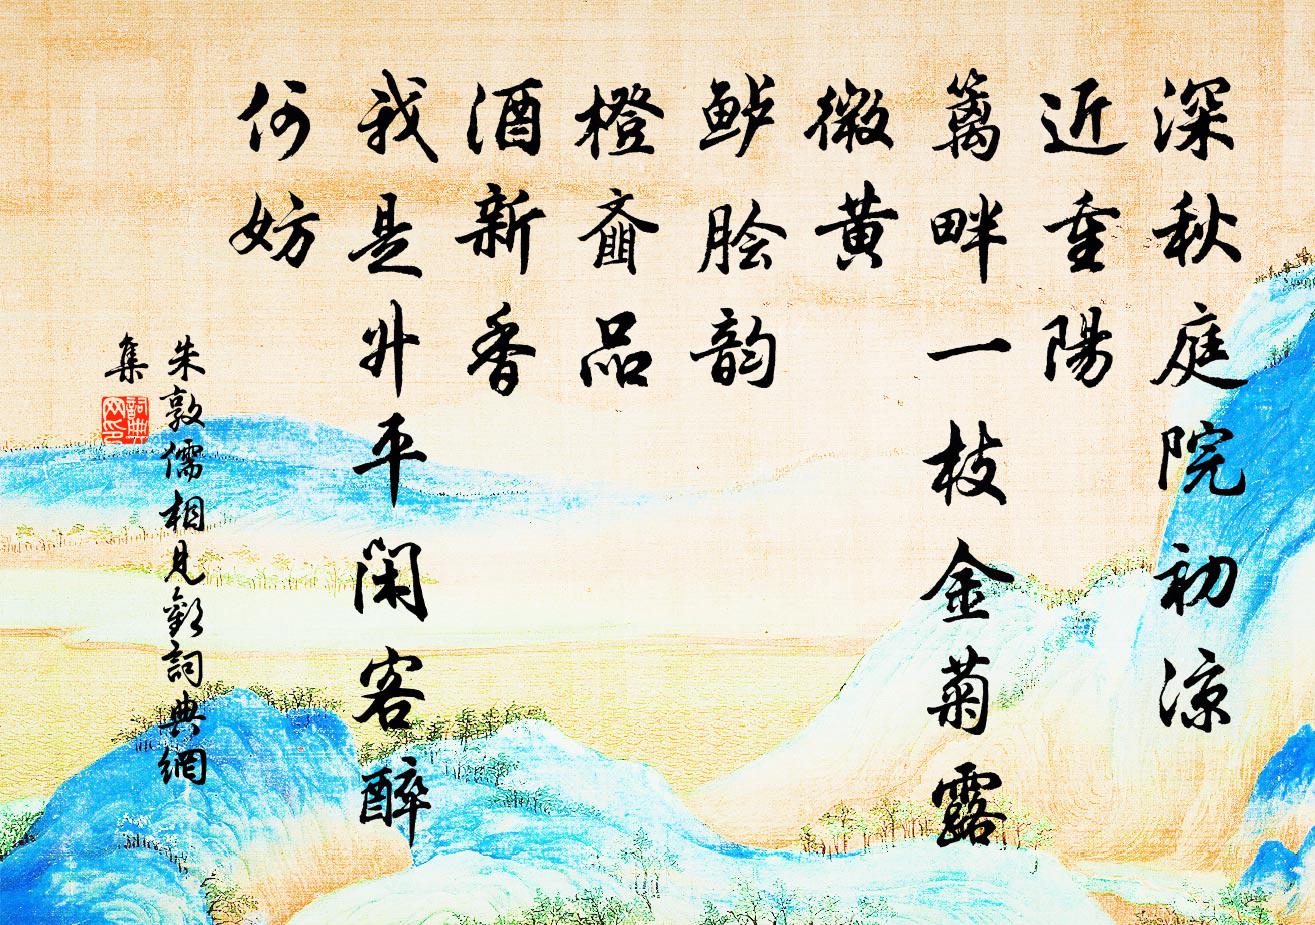 深秋庭院初凉
近重陽
籬畔一枝金菊露
微黄
鲈脍韵
橙齑品
酒新香
我是升平闲客醉
何妨
朱敦儒相見歡詞典網
集
詞典
网印